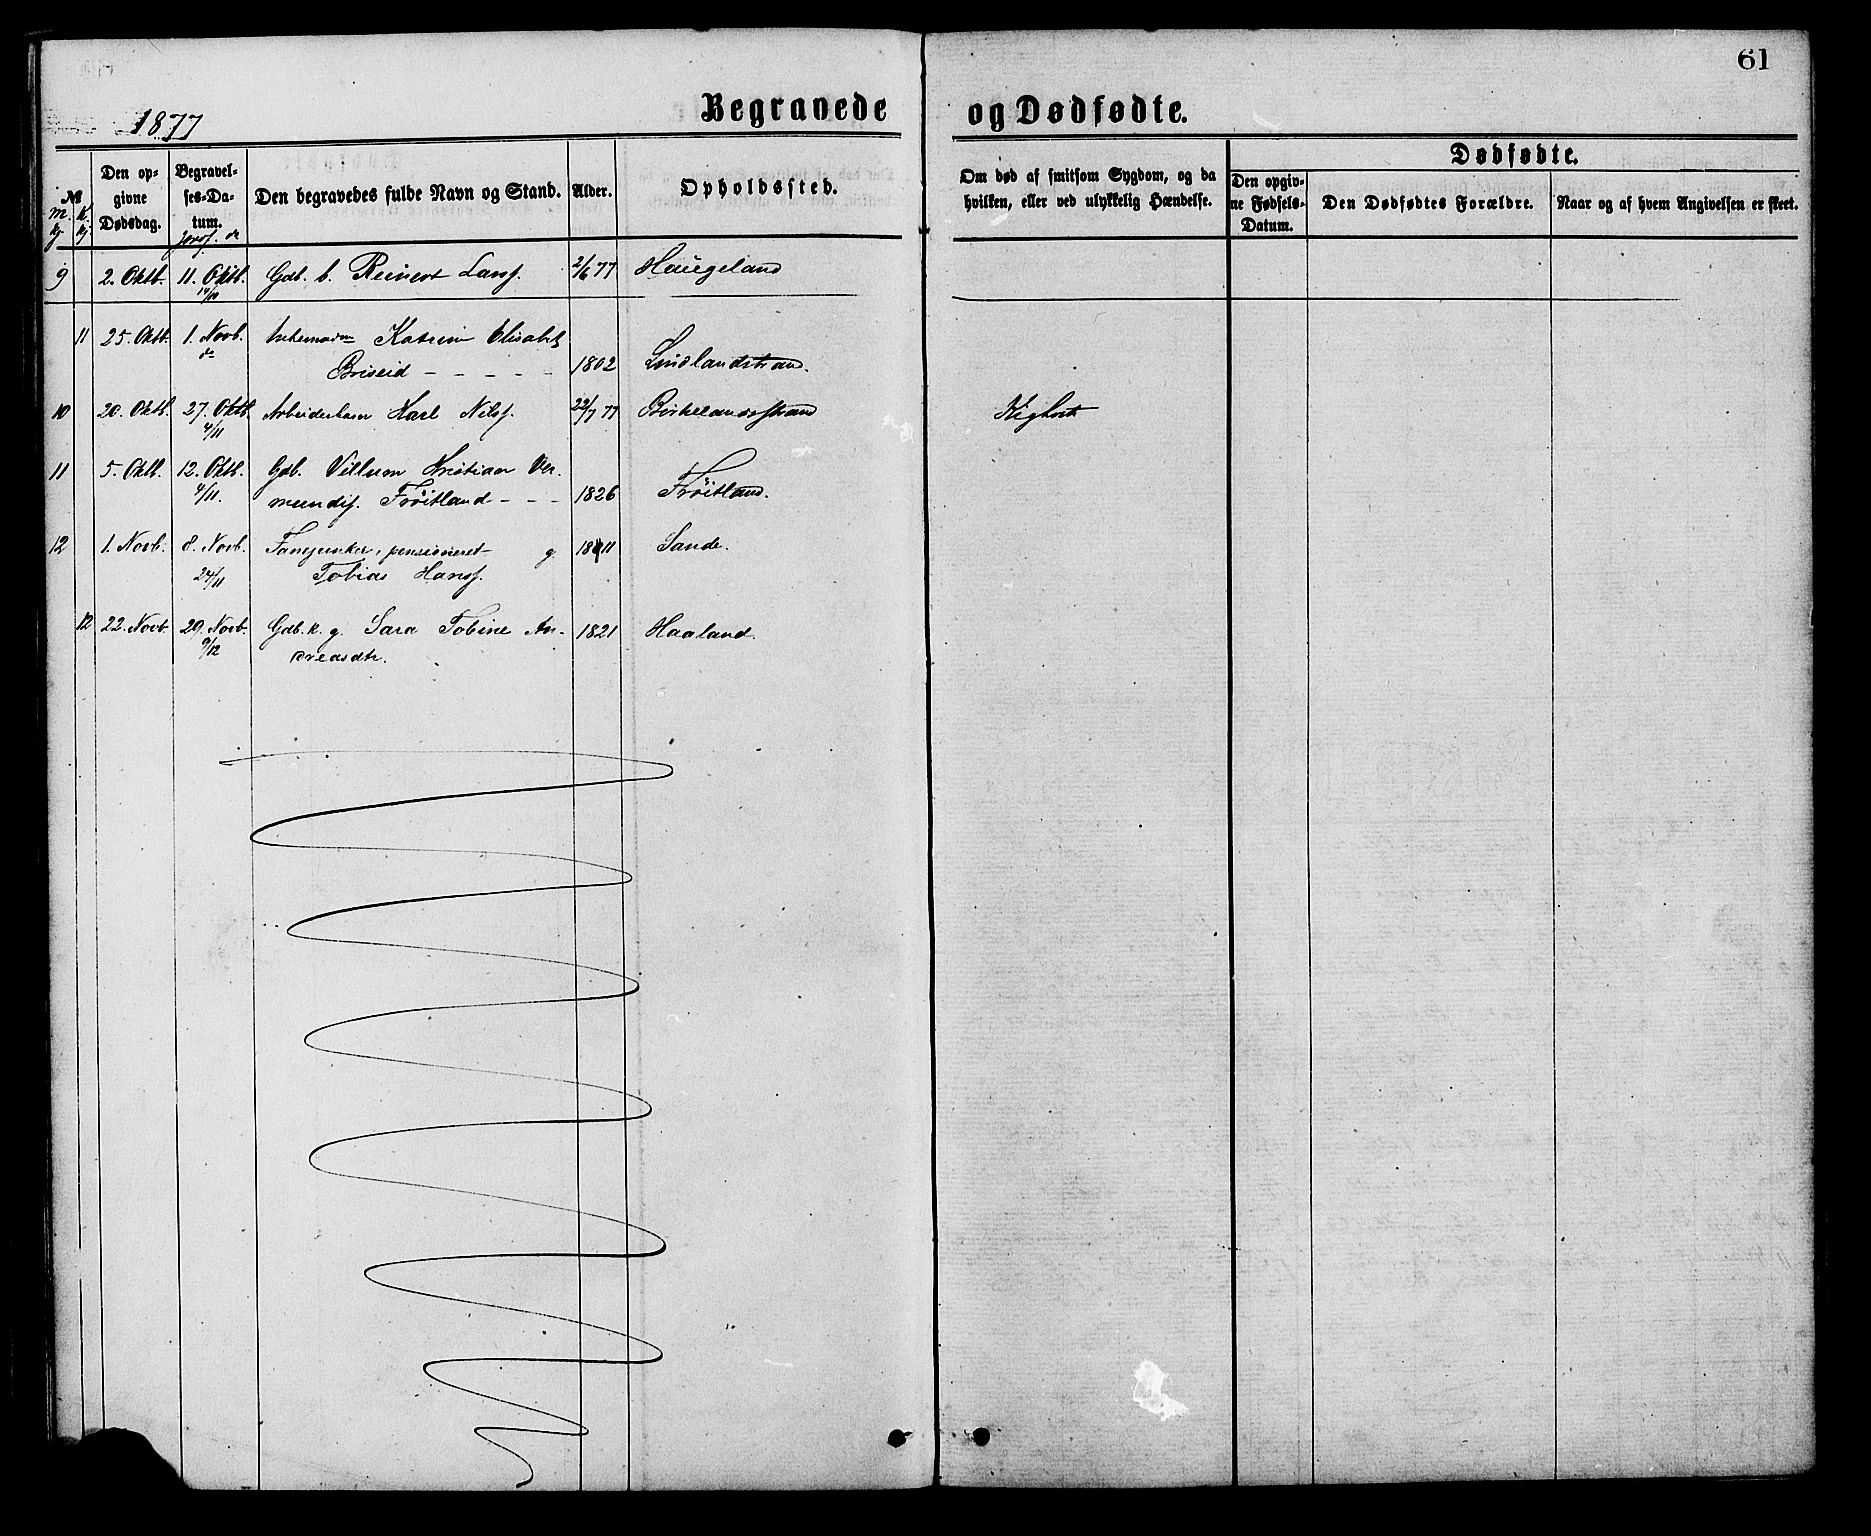 61
1877
Begravede og Dødfødte.
№ Den opgivne Dødsdag. Begravelses-Datum. Den begravedes fulde Navn og Stand. Alder. Opholdssted. Om død af smitsom Sygdom, og da hvilken, eller ved ulykkelig Hændelse. Dødfødte.
Den opgivne Fødsels-Datum. Den Dødfødtes Forældre. Naar og af hvem Angivelsen er skeet.
M. Kj K. Kj
Jordf. d.
9 2. Oktb. 11. Oktb. Gdb. b. Reinert Larsf. 2/6 77 Haugeland
14/10
11 25. Oktb. 1. Novb. Katrine Elisabt
do Briseid - - - - - 1802 Lindlandstrand.
10 20. Oktb. 27. Oktb. Arbeiderbarn Karl Nilsf. 22/7 77 Birkelandsstrand Kighoste
4/11
11 5. Oktb. 12. Oktb. Gdb. Villum Kristian Ver-
4/11. mundsf. Frøitland - - - 1826 Frøitland.
12 1. Novb. 8. Novb. Fanejunker, pensioneret g. 1811 Sande.
24/11 Tobias Hansf.
12 22. Novb. 29. Novb. Gdb. k. g. Sara Tobine An- 1821 Haaland.
9/12 dreasdtr.